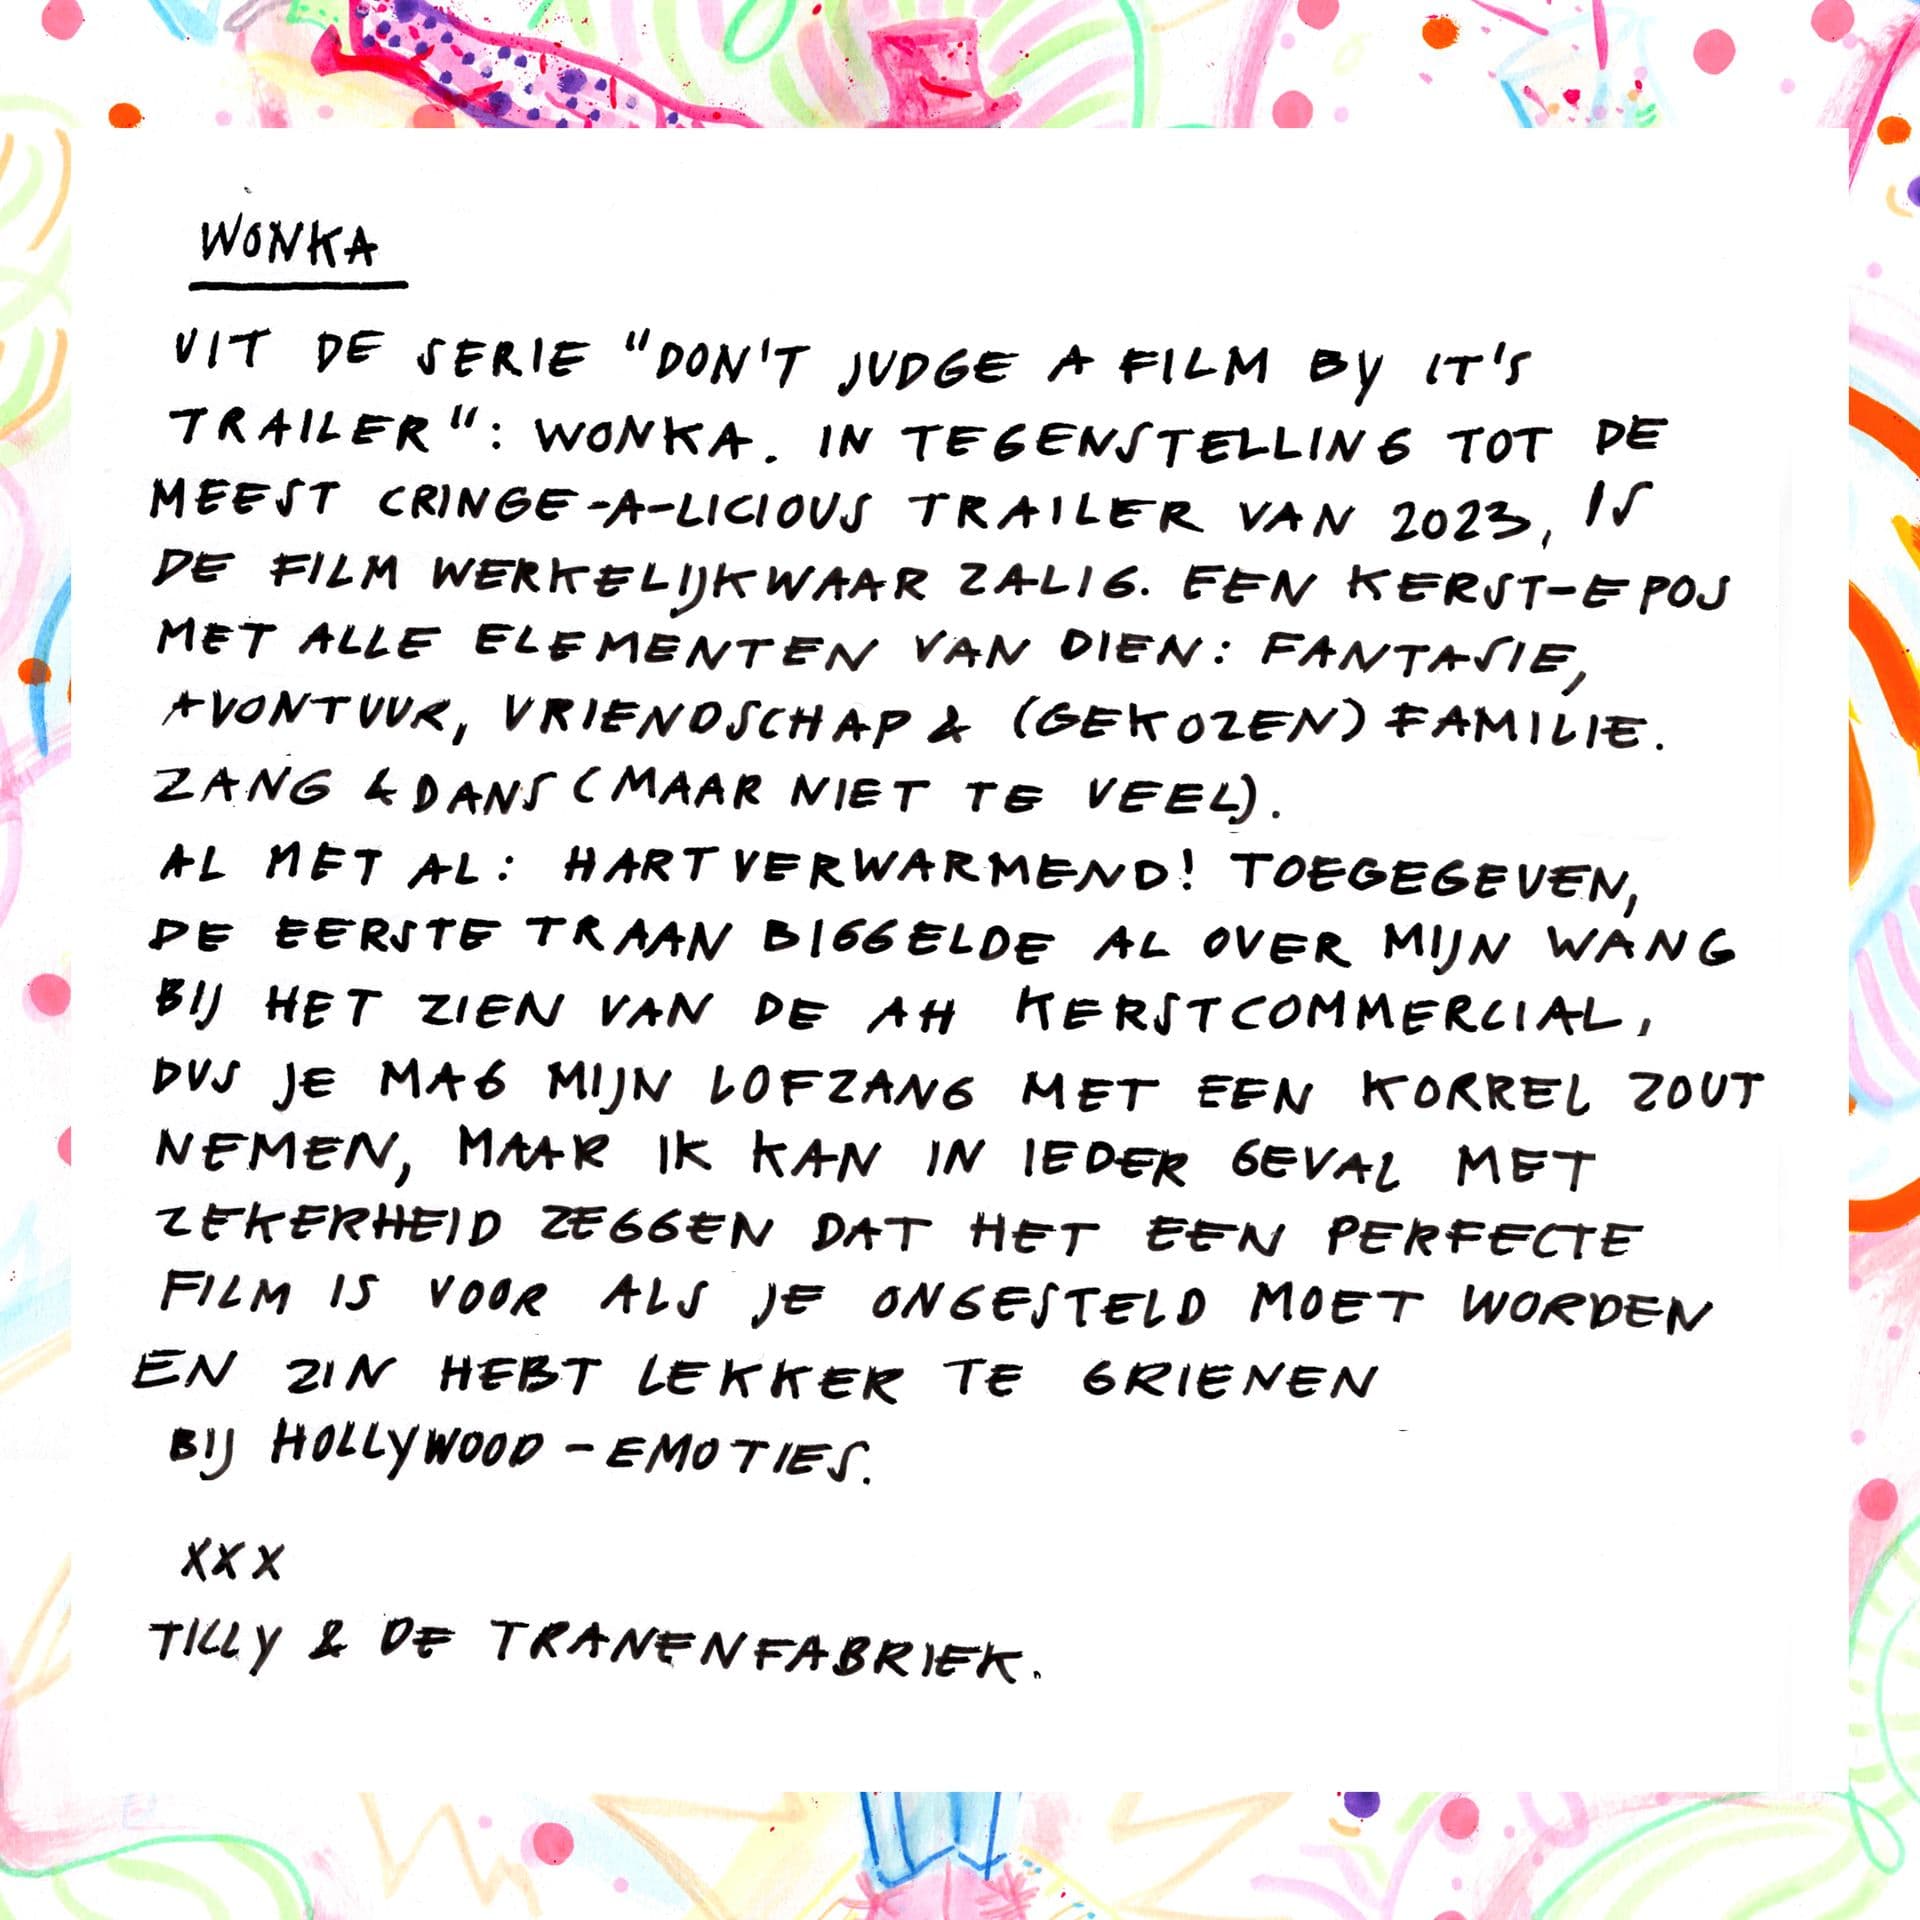 WONKA
UIT DE SERIE "DON'T JUDGE A FILM BY IT'S
TRAILER": WONKA. IN TEGENSTELLING TOT DE
MEEST CRINGE-A-LICIOUS TRAILER VAN 2023, IS
DE FILM WERKELIJKWAAR ZALIG. EEN KERST-EPOS
MET ALLE ELEMENTEN VAN DIEN: FANTASIE,
AVONTUUR, VRIENDSCHAP & (GEKOZEN) FAMILIE.
ZANG & DANS (MAAR NIET TE VEEL).
AL MET AL: HARTVERWARMEND! TOEGEGEVEN,
DE EERSTE TRAAN BIGGELDE AL OVER MIJN WANG
BIJ HET ZIEN VAN DE AH KERSTCOMMERCIAL,
DUS JE MAG MIJN LOFZANG MET EEN KORREL ZOUT
NEMEN, MAAR IK KAN IN IEDER GEVAL MET
ZEKERHEID ZEGGEN DAT HET EEN PERFECTE
FILM IS VOOR ALS JE ONGESTELD MOET WORDEN
EN ZIN HEBT LEKKER TE GRIENEN
BIJ HOLLYWOOD-EMOTIES.
XXX
TILLY & DE TRANENFABRIEK.